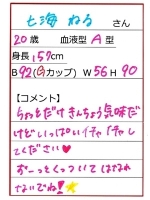 七海 ねる さん
20歳 血液型 A型
身長 157cm
B 92(Gカップ) W 56 H 90
【コメント】
ちょっとだけきんちょう気味だ
けどいっぱいイチャイチャし
てください♥
ずーっとくっついてはなれ
ないでね!